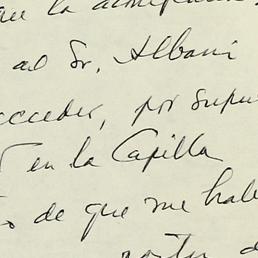 que la
al Sr. Albani
acceder, por supu
en la Capilla
de que me hab